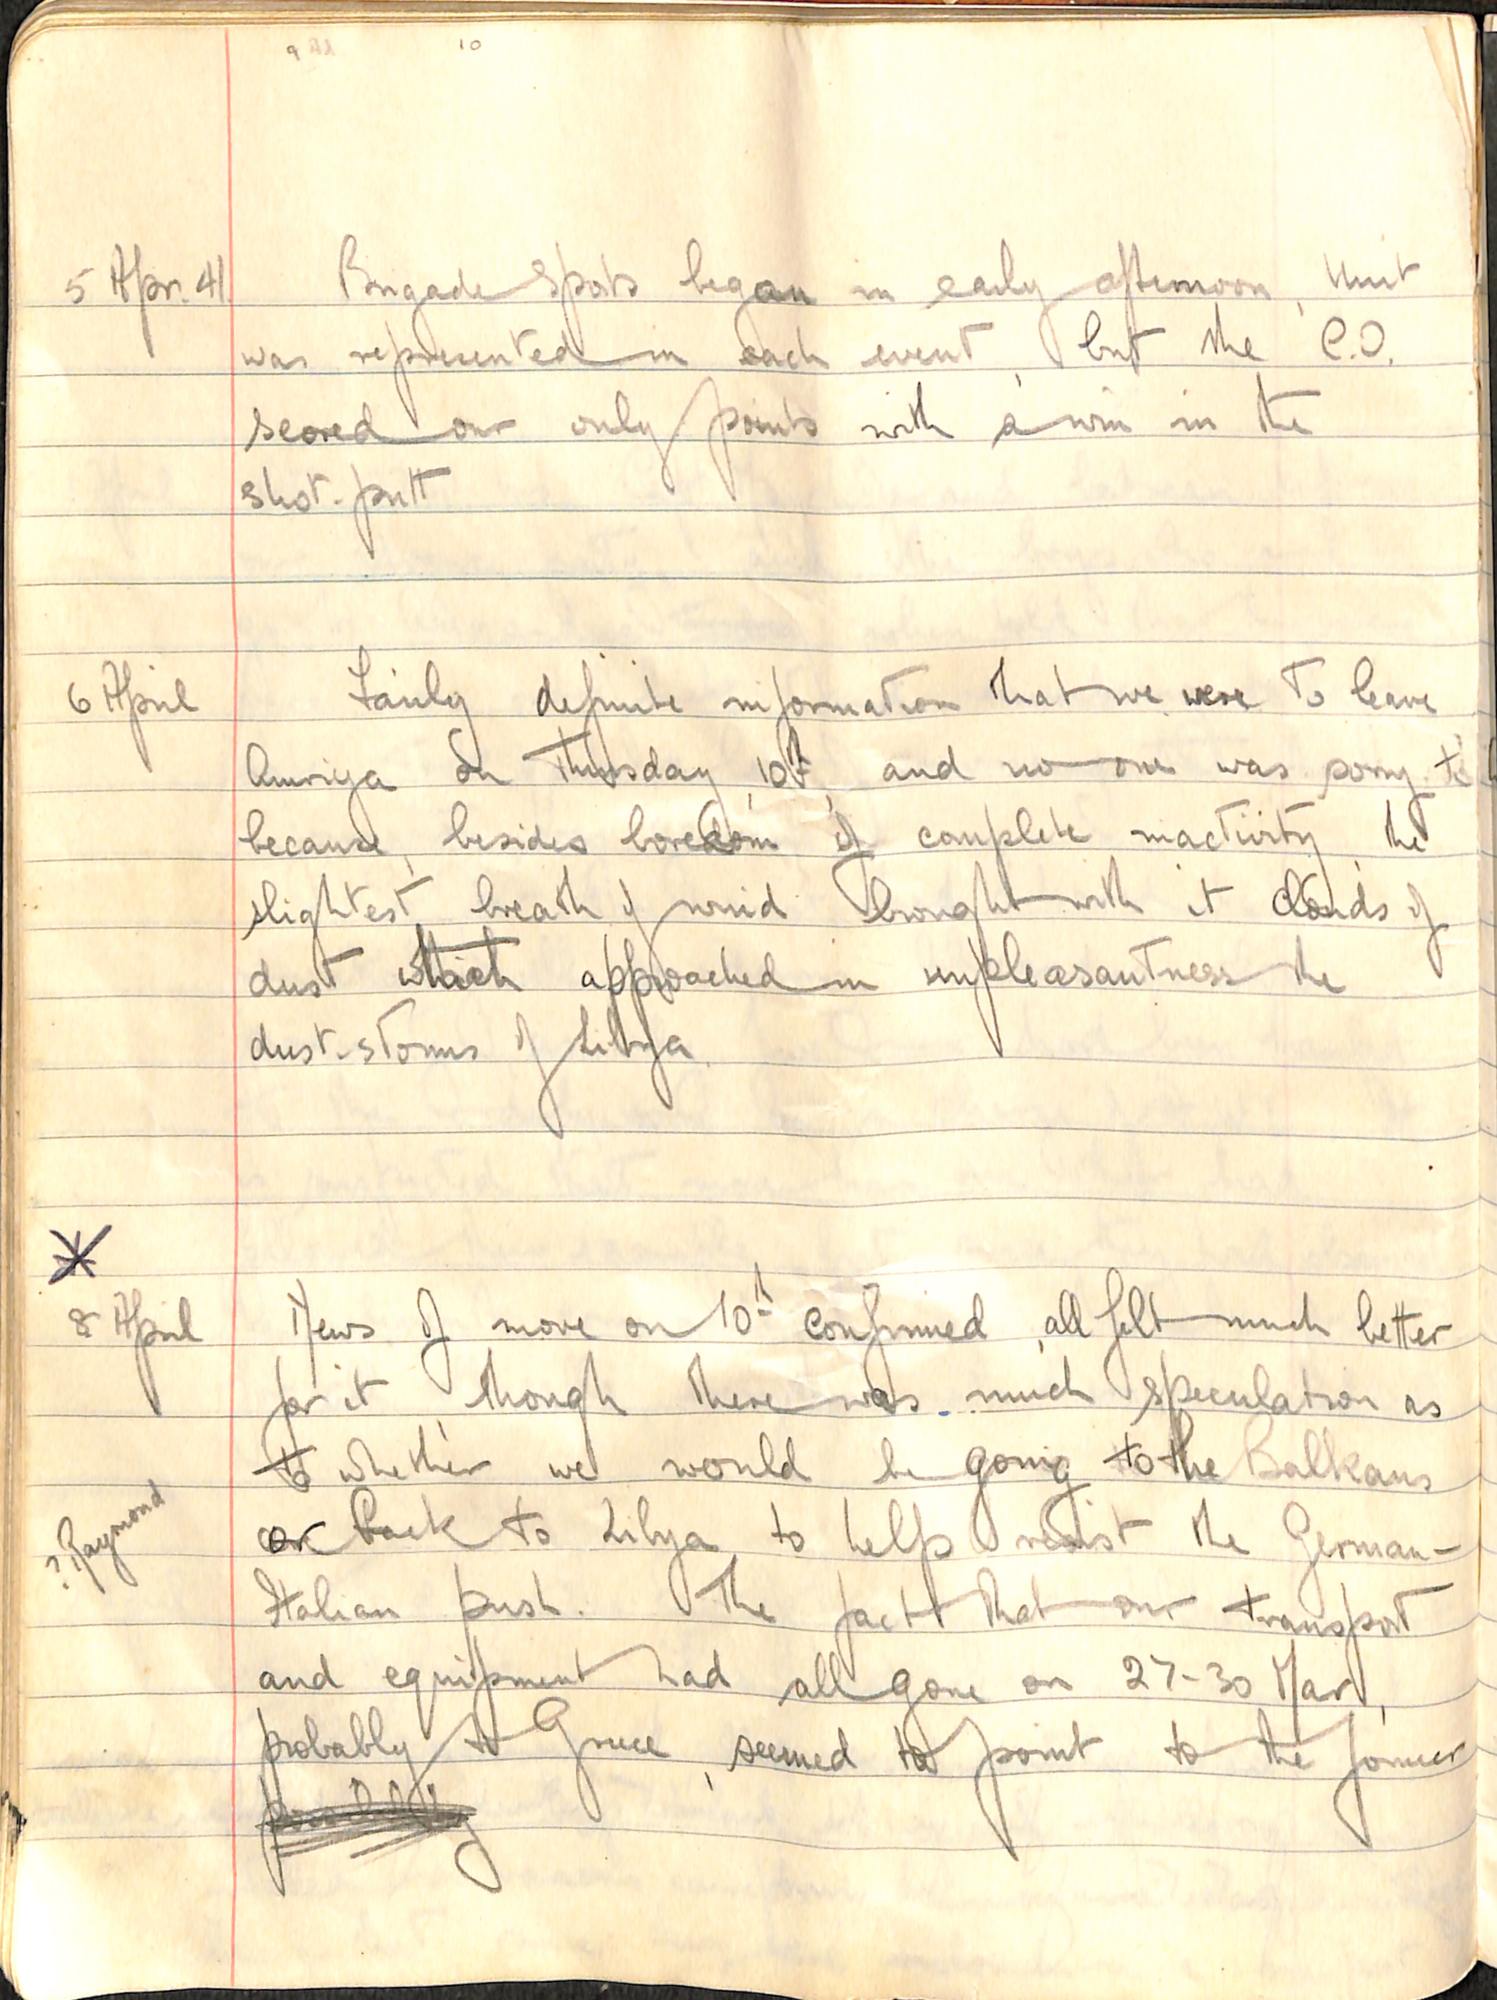 10
5 Apr. 41. Brigade Sports began in early afternoon, Unit
was represented in each event, but the C.O.
scored our only points with a win in the
shot-putt
6 April Fairly definite information that we were to leave
Amriya on Thursday, 10th, and no one was sorry
because, besides boredom of complete inactivity, the
slightest breath of wind brought with it clouds of
dust which approached in unpleasantness the
dust-storms of Libya.
8 April News of move on 10th confirmed, all felt much better
for it, though there was much speculation as
to whether we would be going to the Balkans
or back to Libya to help resist the German-
? Raymond
Italian push. The fact that our transport
and equipment had all gone on 27-30 Mar,
probably to Greece, seemed to point to the former